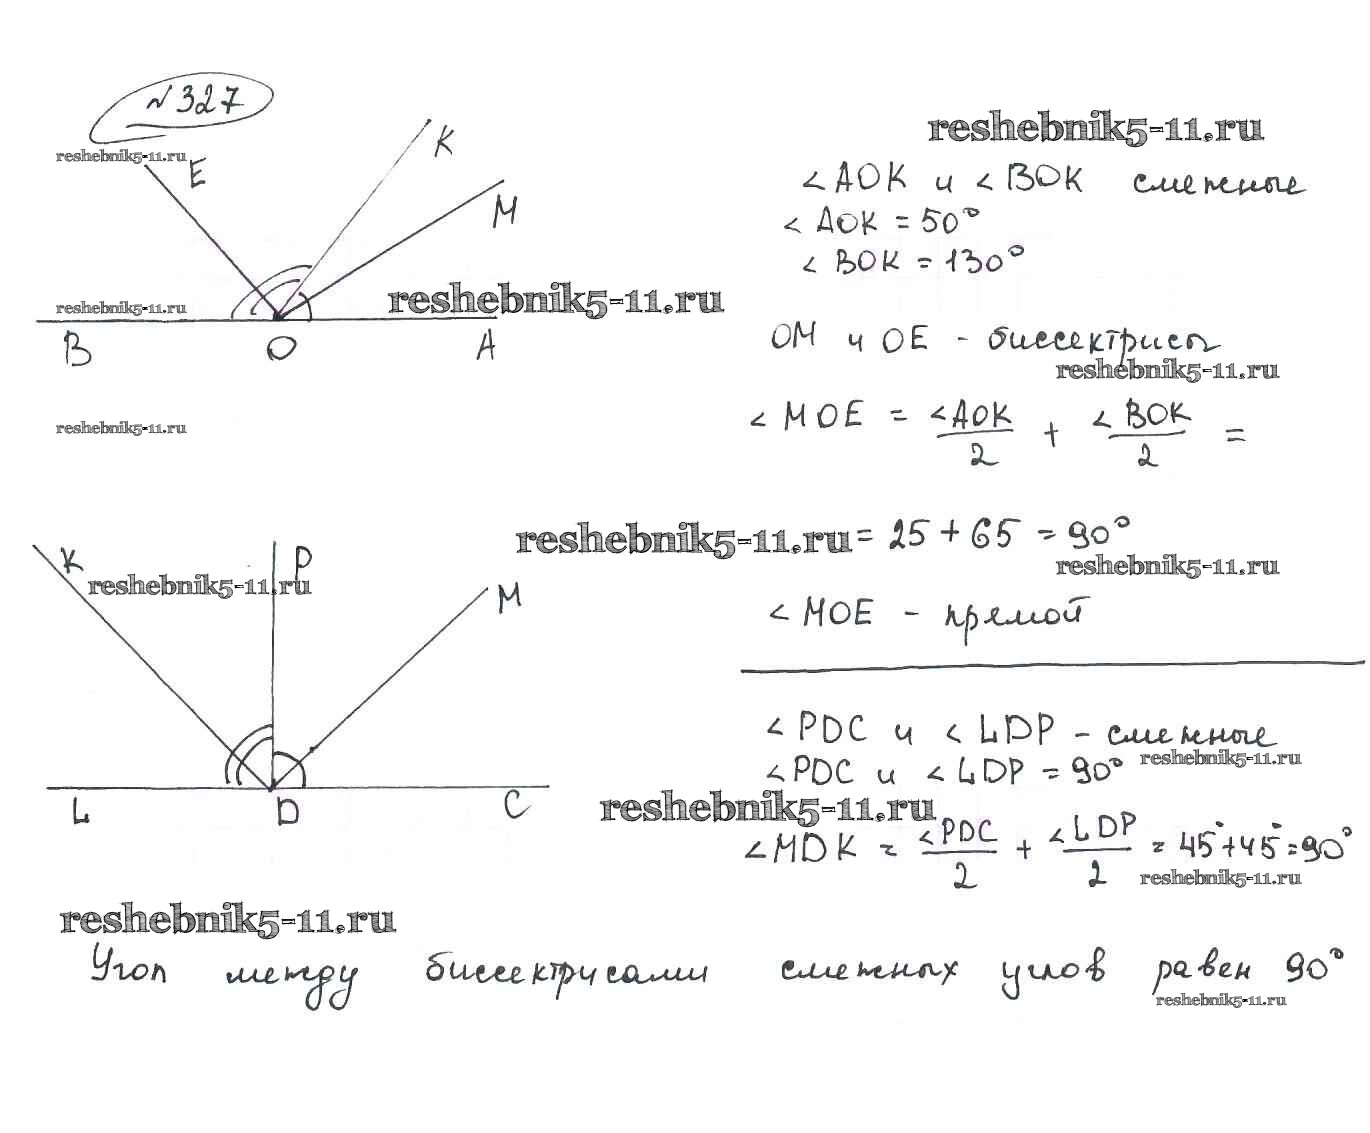 №327
reshebnik5-11.ru
E
K
M
reshebnik5-11.ru
reshebnik5-11.ru
B
O
A
reshebnik5-11.ru
reshebnik5-11.ru
∠AOK и ∠BOK смежные
∠AOK = 50°
∠BOK = 130°
OM и OE - биссектрисы
reshebnik5-11.ru
∠MOE = ∠AOK/2 + ∠BOK/2 =
reshebnik5-11.ru
= 25 + 65 = 90°
reshebnik5-11.ru
∠MOE - прямой
K
P
M
reshebnik5-11.ru
L
D
C
∠PDC и ∠LDP - смежные
reshebnik5-11.ru
∠PDC и ∠LDP = 90°
reshebnik5-11.ru
∠MDK = ∠PDC/2 + ∠LDP/2 = 45°+45°=90°
reshebnik5-11.ru
reshebnik5-11.ru
Угол между биссектрисами смежных углов равен 90°
reshebnik5-11.ru